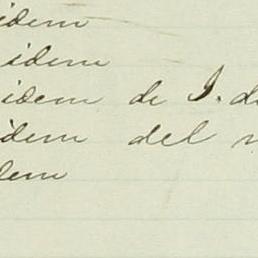 idem
idem
idem de I. d
idem del
idem